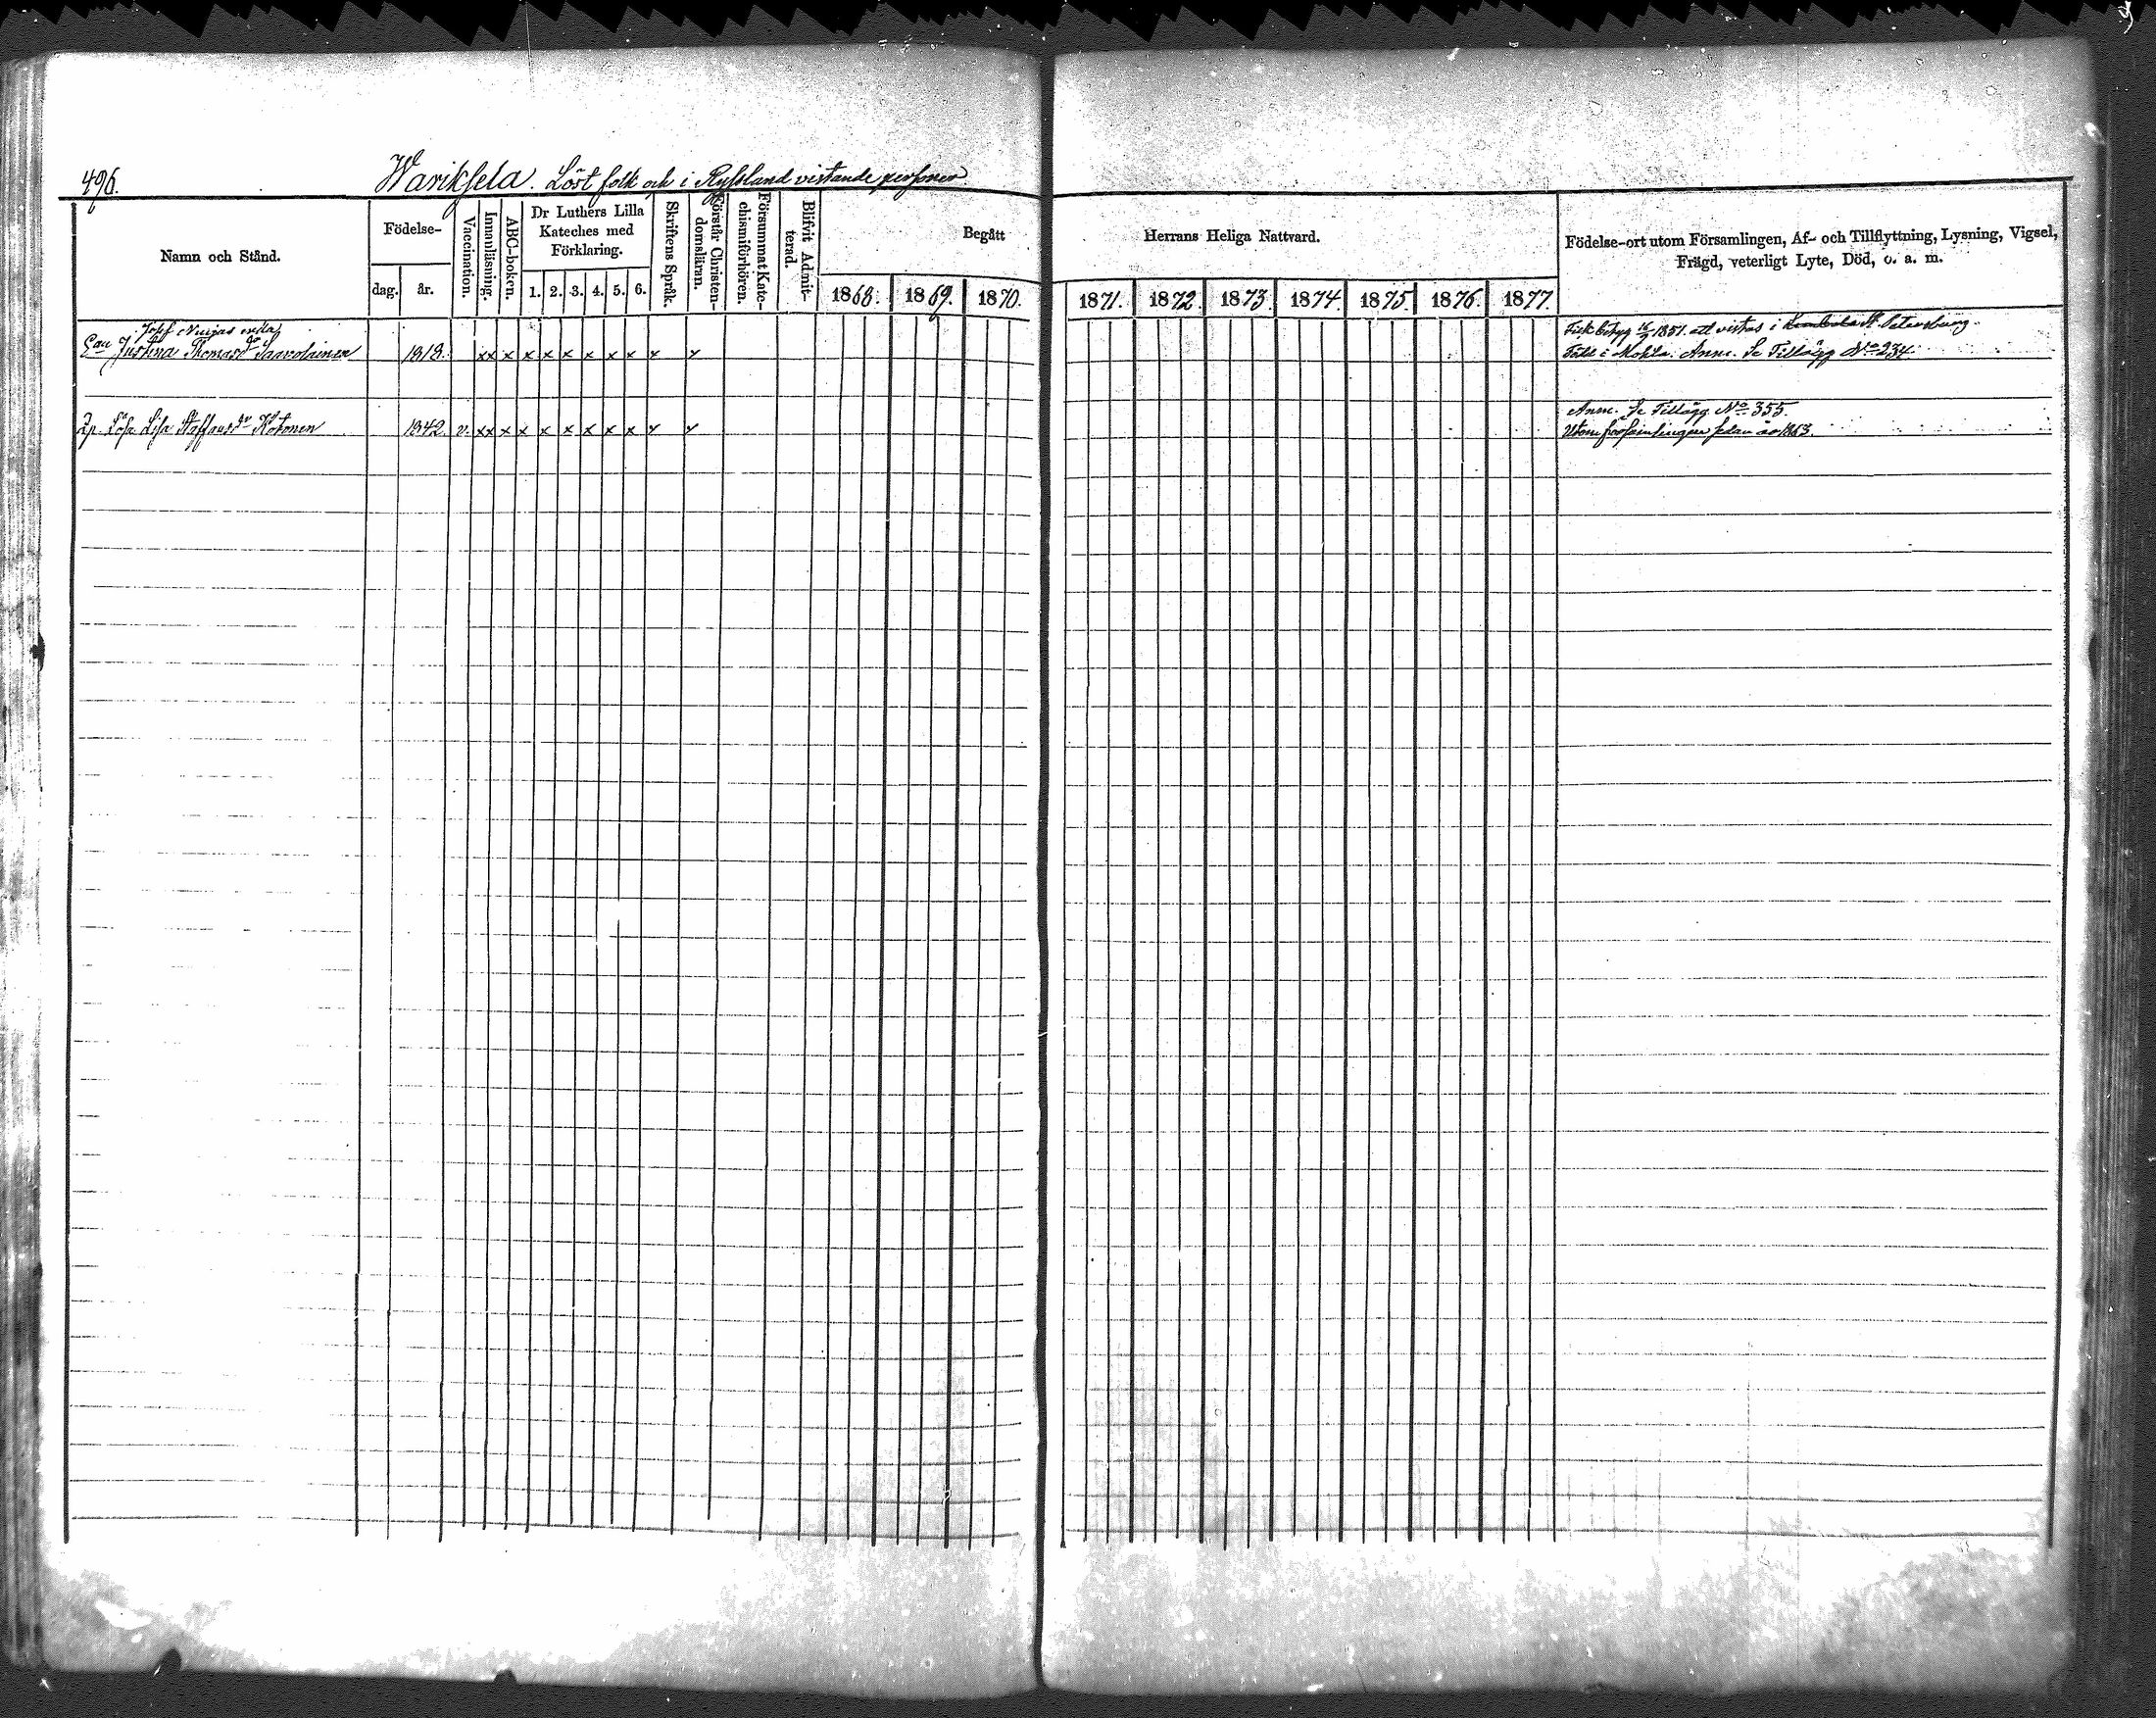 496.
Wariksela. Löst folk och i Ryssland vistande personer
Namn och Stånd.
Födelse-
dag.
år.
Vaccination.
Innanläsning.
ABC-boken.
Dr Luthers Lilla
Kateches med
Förklaring.
1. 2. 3. 4. 5. 6.
Skriftens Språk.
Förstår Christen-
domsläran.
Försummat Kate-
chismiförhören.
Blifvit Admit-
terad.
Begått
Herrans Heliga Nattvard.
1868. 1869. 1870.
1871. 1872. 1873. 1874. 1875. 1876. 1877.
Födelse-ort utom Församlingen, Af- och Tillflyttning, Lysning, Vigsel,
Frägd, veterligt Lyte, Död, o. a. m.
Josef
Fick betyg 16/9 1851. att vistas i St Petersburg.
Justina Thomasdr Saavolainen 1818. xx x x x x x x x x x
Född i Mohla. Anm. Se Tillägg No 234.
Anm. Se Tillägg No 355.
Lisa Staffansdr Kotonen 1842. v. xx x x x x x x x x x
Utom församlingen sedan år 1863.